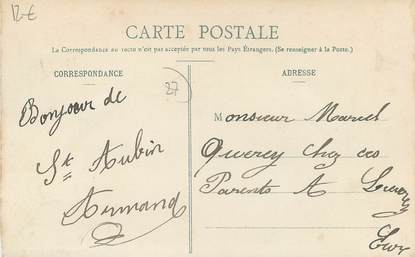 12€
CARTE POSTALE
La Correspondance au recto n'est pas acceptée par tous les Pays Étrangers. (Se renseigner à la Poste.)
CORRESPONDANCE
27
Bonjour de
St Aubin
Armand
ADRESSE
Monsieur Marcel
Querey chez ses
Parents A
Eure